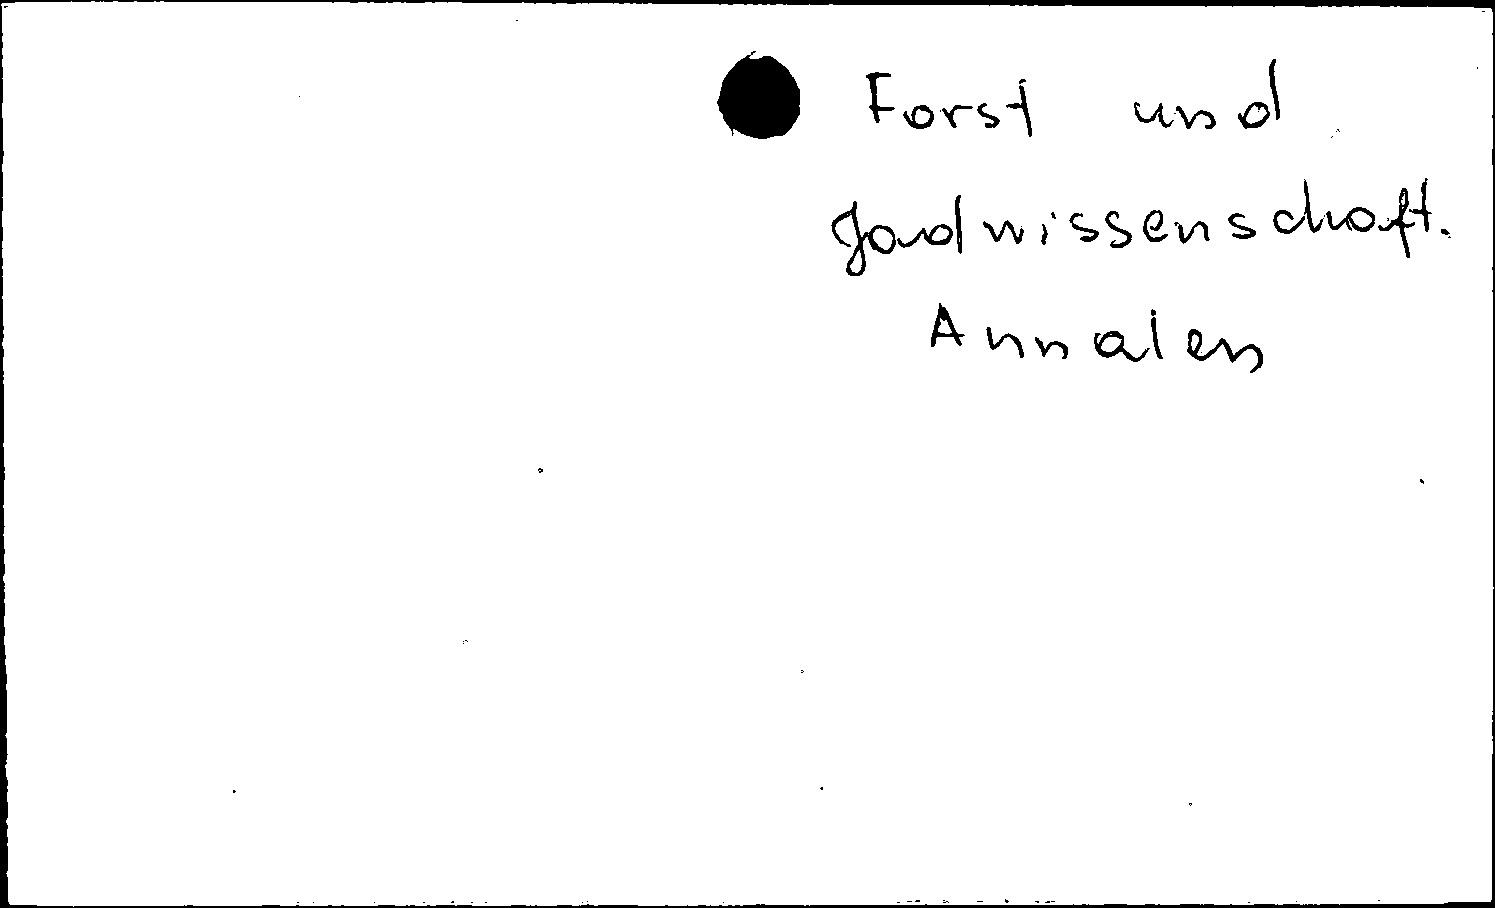 Forst und
Jandwissenschaft.
Annalen